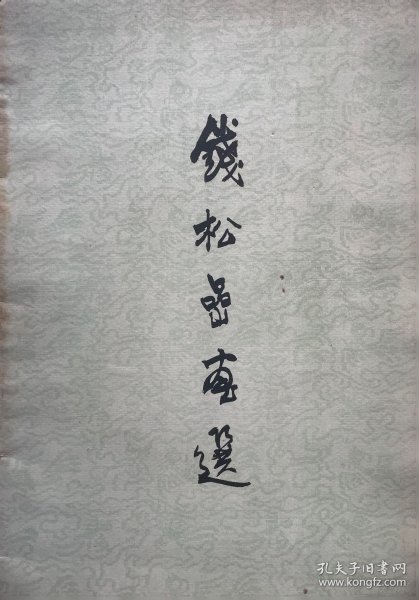 錢松嵒画選
孔夫子旧书网
www.kongfz.com